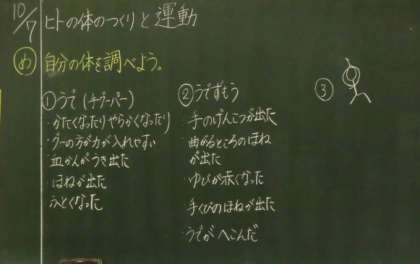 10/7 ヒトの体のつくりと運動
め 自分の体を調べよう。
①うで(チグーパー)
・かたくなったりやらかくなったり
・グーの方が力が入れやすい
・血かんがうき出た
・ほねが出た
・ふとくなった
②うでずもう
・手のげんこつが出た
・曲がるところのほね
が出た
・ゆびが赤くなった
・手くびのほねが出た
・うでがへこんだ
③